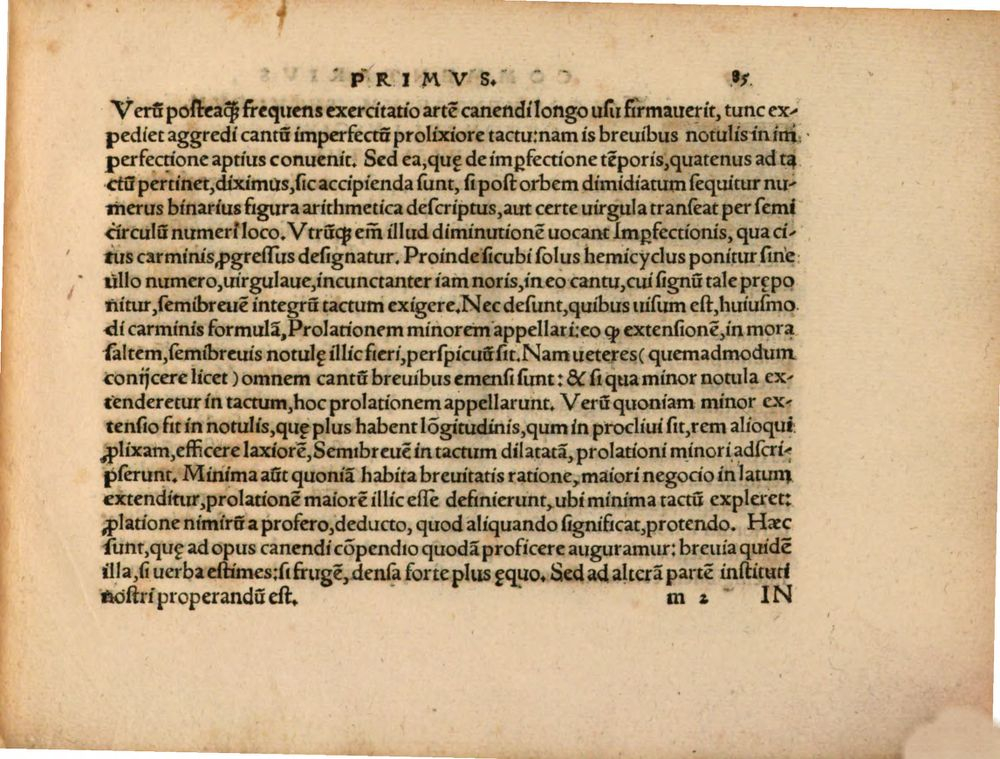 PRIMVS. 85.
Verũ posteaq̃ frequens exercitatio artẽ canendi longo usu firmauerit, tunc ex-
pediet aggredi cantũ imperfectũ prolixiore tactu: nam is breuibus notulis in im
perfectione aptius conuenit. Sed ea, quę de imꝑfectione tẽporis, quatenus ad ta
ctũ pertinet, diximus, sic accipienda sunt, si post orbem dimidiatum sequitur nu-
merus binarius figura arithmetica descriptus, aut certe uirgula transeat per semi
circulũ numeri loco. Vtrũq; em̃ illud diminutionẽ uocant Imꝑfectionis, qua ci-
tus carminis ꝓgressus designatur. Proinde sicubi solus hemicyclus ponitur sine
ullo numero, uirgulaue, incunctanter iam noris, in eo cantu, cui signũ tale prępo
nitur, semibreuẽ integrũ tactum exigere. Nec desunt, quibus uisum est, huiusmo
di carminis formulã, Prolationem minorem appellari: eo ꝙ extensionẽ, in mora
saltem, semibreuis notulę illic fieri, perspicuũ sit. Nam ueteres (quemadmodum
conijcere licet) omnem cantũ breuibus emensi sunt: & si qua minor notula ex-
tenderetur in tactum, hoc prolationem appellarunt. Verũ quoniam minor ex-
tensio fit in notulis, quę plus habent lõgitudinis, qum in procliui sit, rem alioqui
ꝓlixam, efficere laxiorẽ, Semibreuẽ in tactum dilatatã, prolationi minori adscri-
pserunt. Minima aũt quoniã habita breuitatis ratione, maiori negocio in latum
extenditur, prolationẽ maiorẽ illic esse definierunt, ubi minima tactũ expleret:
ꝓlatione nimirũ a profero, deducto, quod aliquando significat, protendo. Hæc
sunt, quę ad opus canendi cõpendio quodã proficere auguramur: breuia quidẽ
illa, si uerba estimes: si frugẽ, densa forte plus ęquo. Sed ad alterã partẽ instituti
nostri properandũ est. m 2 IN